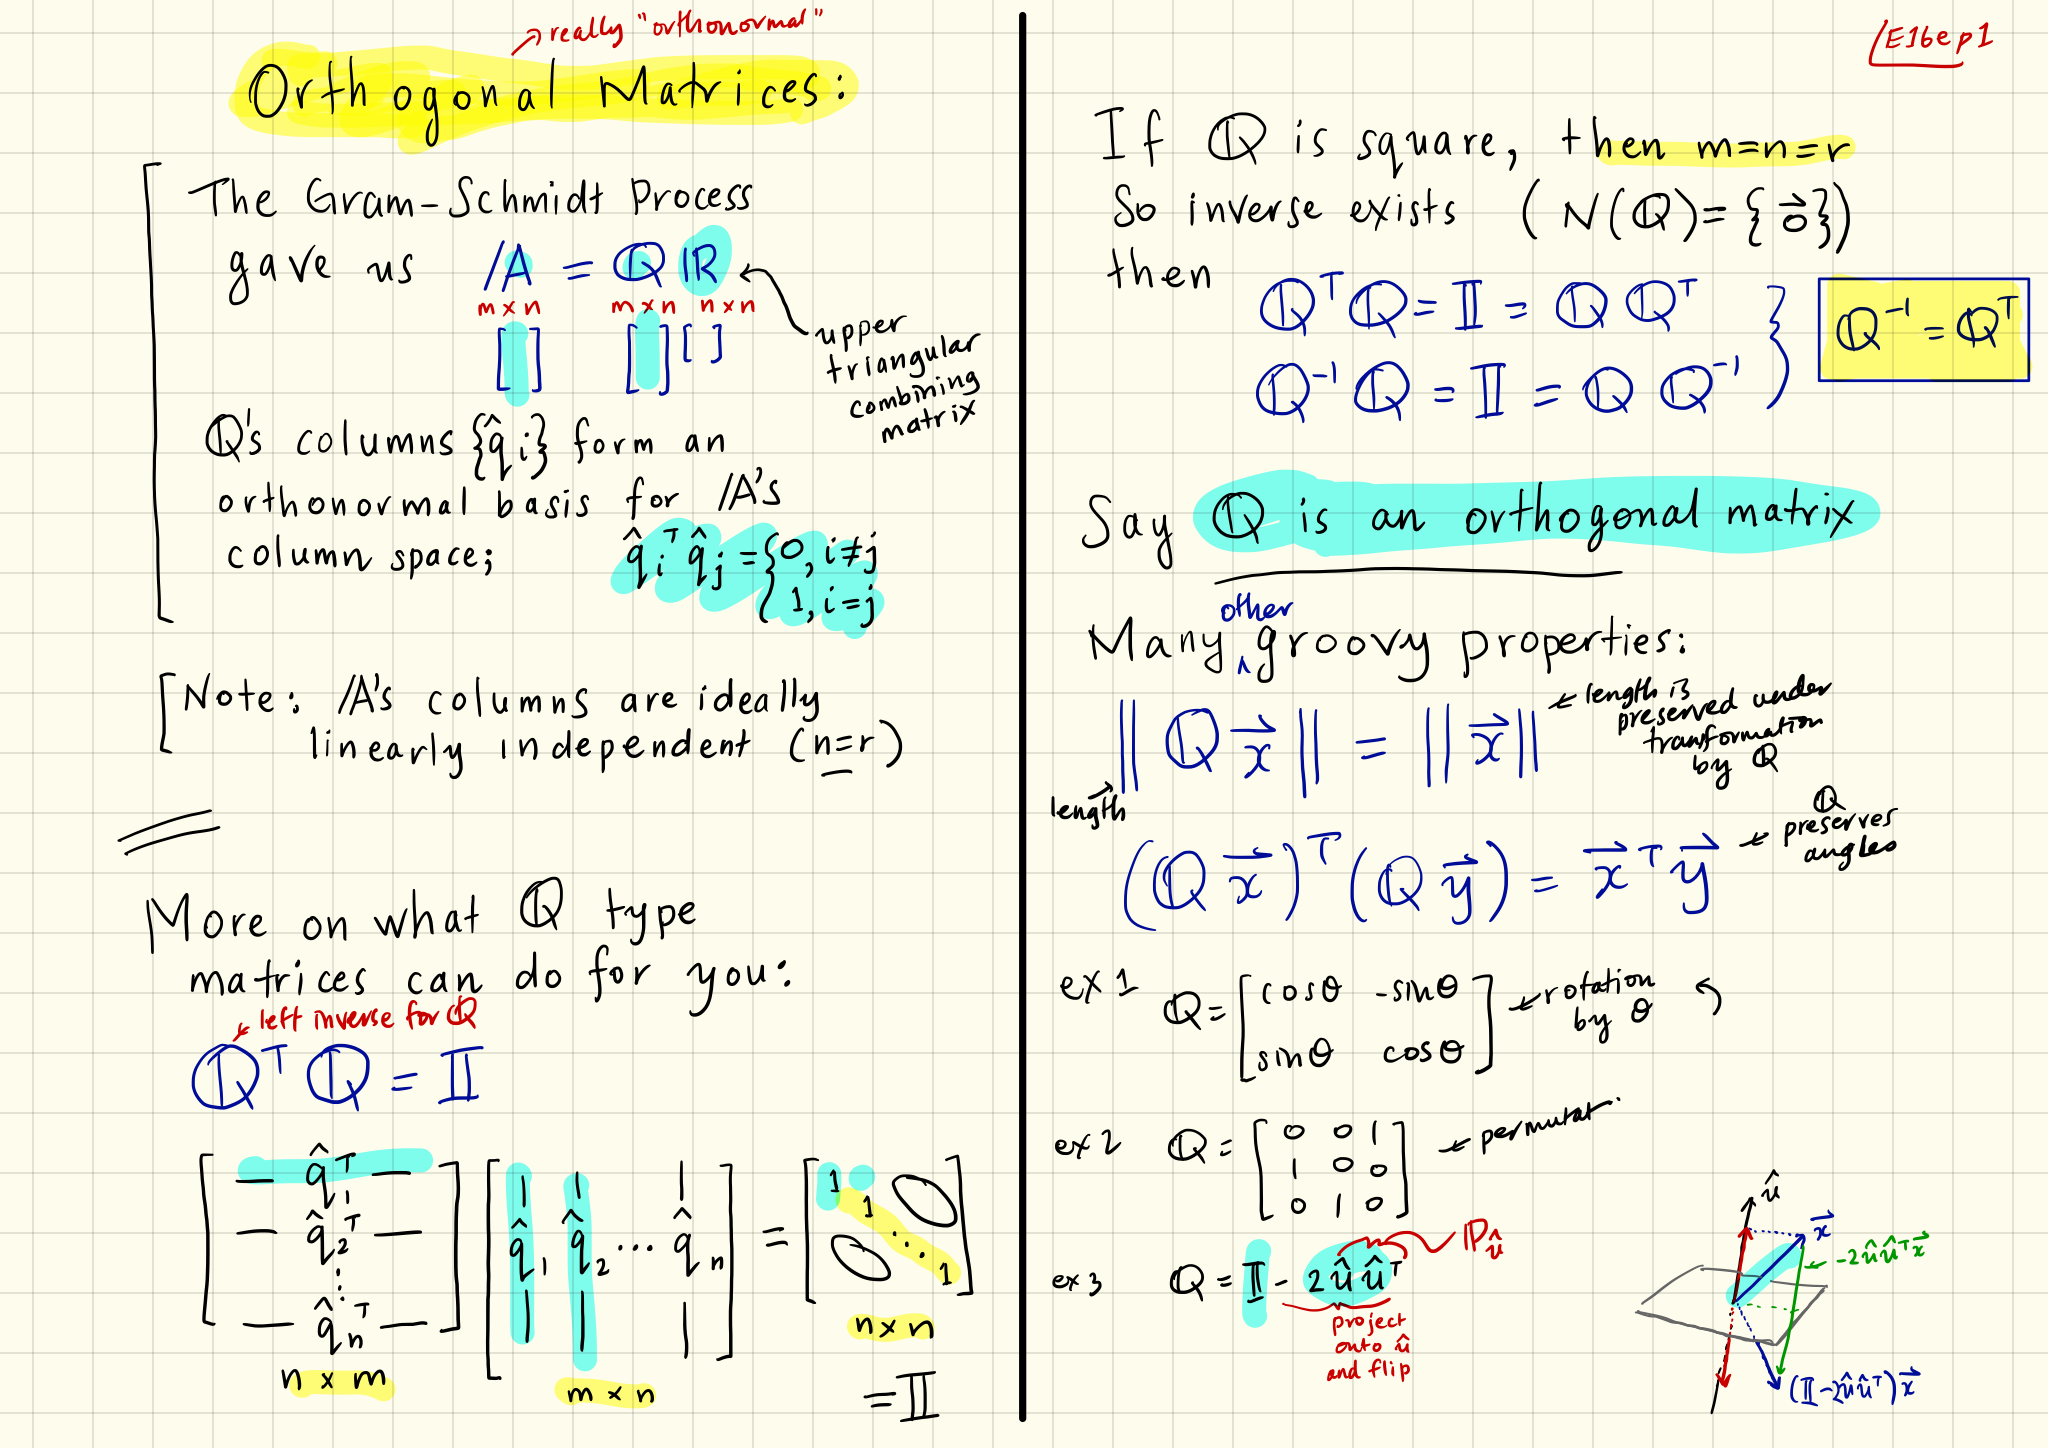 → really "orthonormal"
Orthogonal Matrices:
The Gram-Schmidt Process
gave us 𝔸 = ℚ ℝ
m×n m×n n×n
[ ] [ ] [ ]
upper
triangular
combining
matrix
ℚ's columns {q̂ᵢ} form an
orthonormal basis for 𝔸's
column space; q̂ᵢᵀ q̂ⱼ = { 0, i≠j
1, i=j
[Note: 𝔸's columns are ideally
linearly independent (n=r)
More on what ℚ type
matrices can do for you:
left inverse for ℚ
ℚᵀ ℚ = 𝕀
[ — q̂₁ᵀ —
— q̂₂ᵀ —
⋮
— q̂ₙᵀ — ]
n × m
[ | | |
q̂₁ q̂₂ ... q̂ₙ
| | | ]
m × n
= [ 1 0
1
⋱
0 1 ]
n × n
= 𝕀
E16ep1
If ℚ is square, then m=n=r
So inverse exists (N(ℚ)={0⃗})
then
ℚᵀℚ = 𝕀 = ℚ ℚᵀ
ℚ⁻¹ ℚ = 𝕀 = ℚ ℚ⁻¹
} ℚ⁻¹ = ℚᵀ
Say ℚ is an orthogonal matrix
other
Many ∧ groovy properties:
‖ ℚ x⃗ ‖ = ‖ x⃗ ‖
length is
preserved under
transformation
by ℚ
length
(ℚ x⃗)ᵀ (ℚ y⃗) = x⃗ᵀ y⃗
ℚ
preserves
angles
ex 1 ℚ = [ cosθ -sinθ
sinθ cosθ ]
rotation
by θ
ex 2 ℚ = [ 0 0 1
1 0 0
0 1 0 ]
permutat.
ex 3 ℚ = 𝕀 - 2 û ûᵀ
ℙû
project
onto û
and flip
û
x⃗
-2ûûᵀx⃗
(𝕀-2ûûᵀ)x⃗